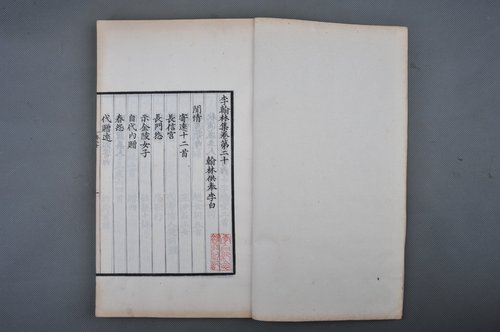 李翰林集卷第二十
翰林供奉李白
閨情
寄遠十二首
長信宮
長門怨
示金陵女子
自代內贈
春怨
代贈遠